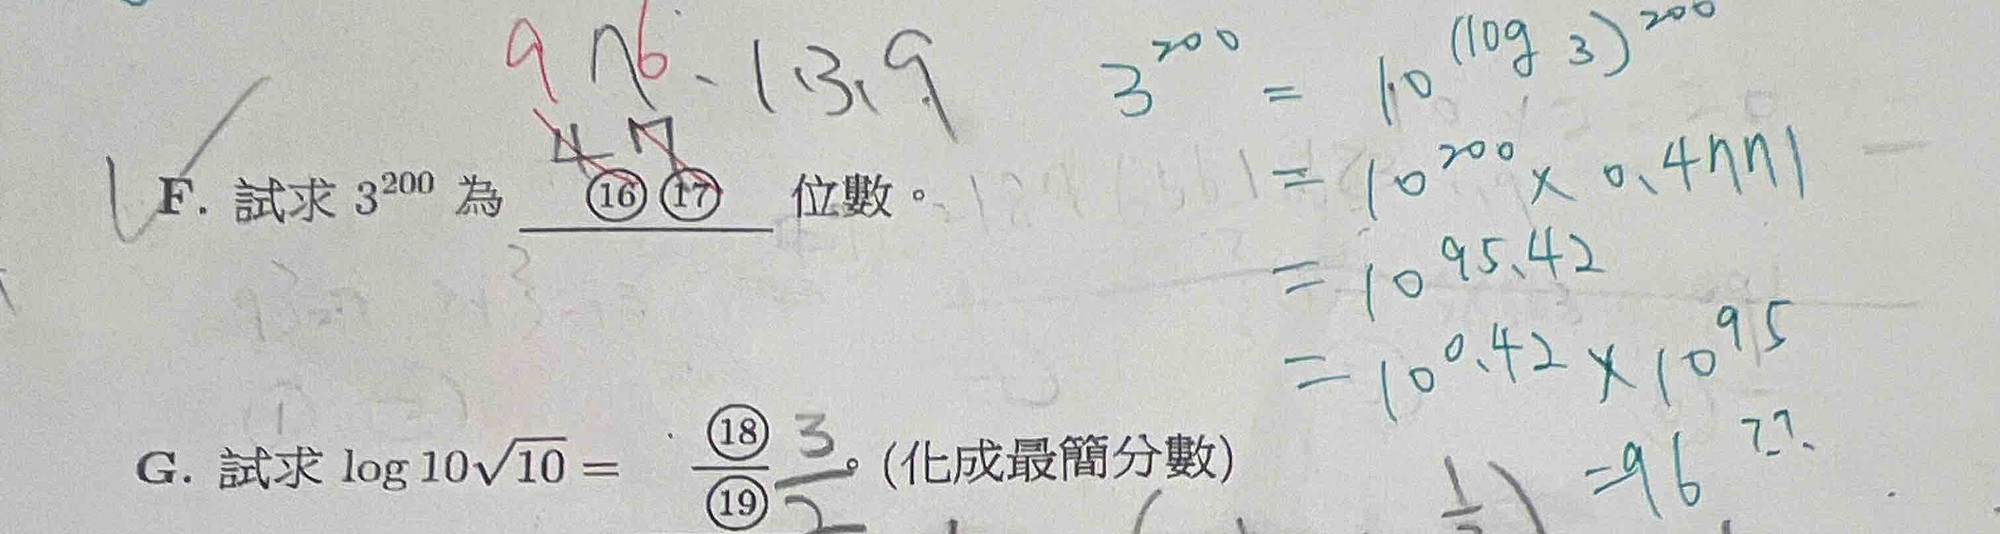 9 76、13,9
47
F. 試求 3^200 為 ⑯ ⑰ 位數。
3^200 = 10^(log 3)^200
= 10^200 × 0.4771
= 10^95.42
= 10^0.42 × 10^95
=96 ??.
G. 試求 log 10√10 = ⑱/⑲ 3/2。(化成最簡分數)